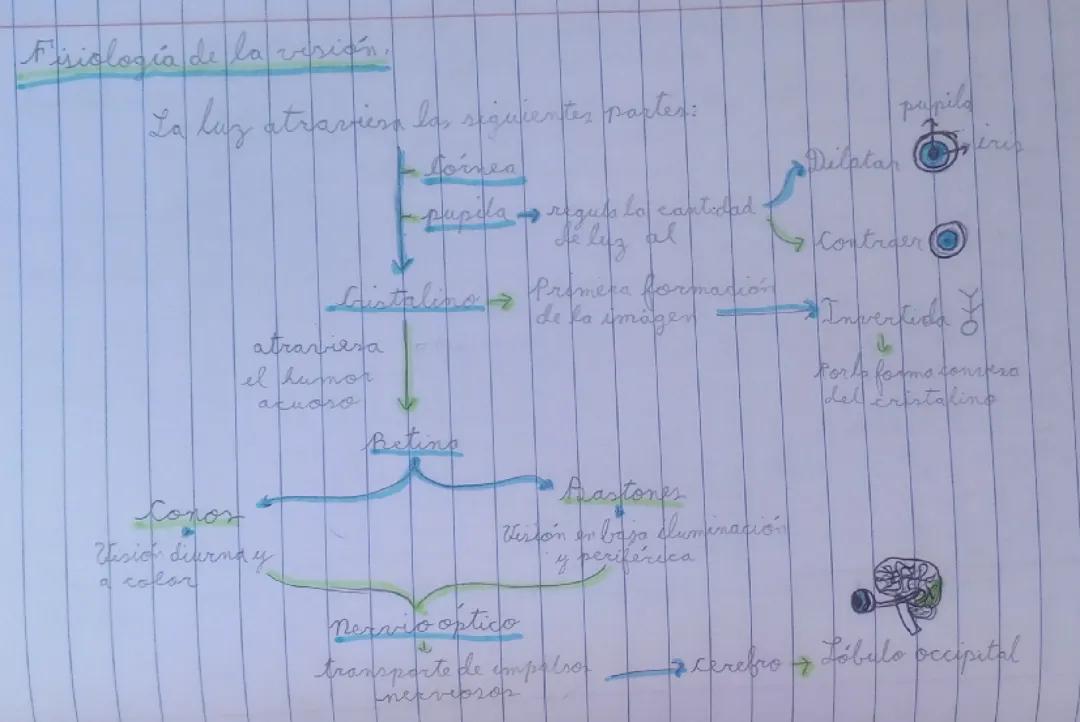 Fisiología de la visión.
La luz atraviesa las siguientes partes:
Córnea
pupila
regula la cantidad
de luz al
Dilatar
pupila
iris
Contraer
Cristalino
Primera formación
de la imágen
Invertida
Por la forma convexa
del cristalino
atraviesa
el humor
acuoso
Retina
Conos
Visión diurna y
a color
Bastones
Visión en baja iluminación
y periférica
Nervio óptico
transporte de impulsos
nerviosos
cerebro
Lóbulo occipital